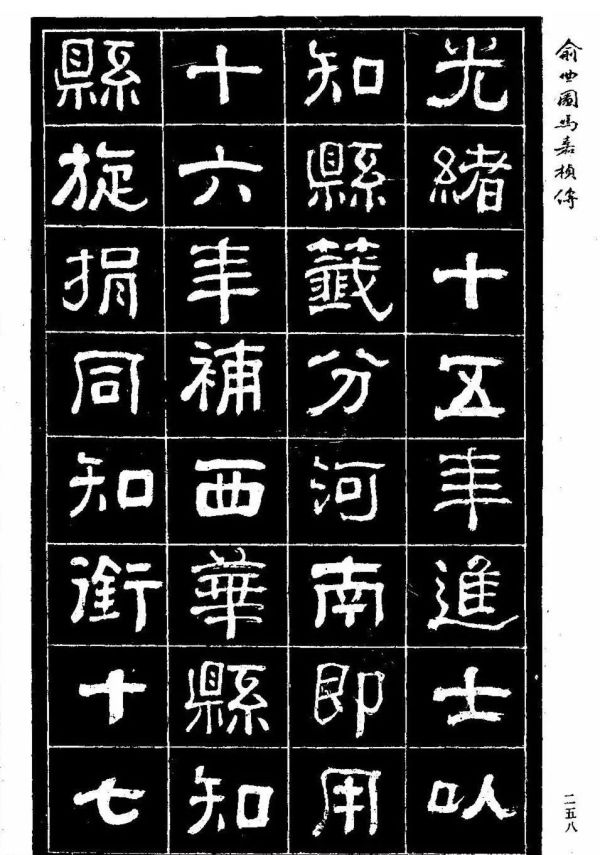 俞曲園馬嘉楨傳
光緒十五年進士㕥
知縣籤分河南即用
十六年補西華縣知
縣旋捐同知銜十七
二五八